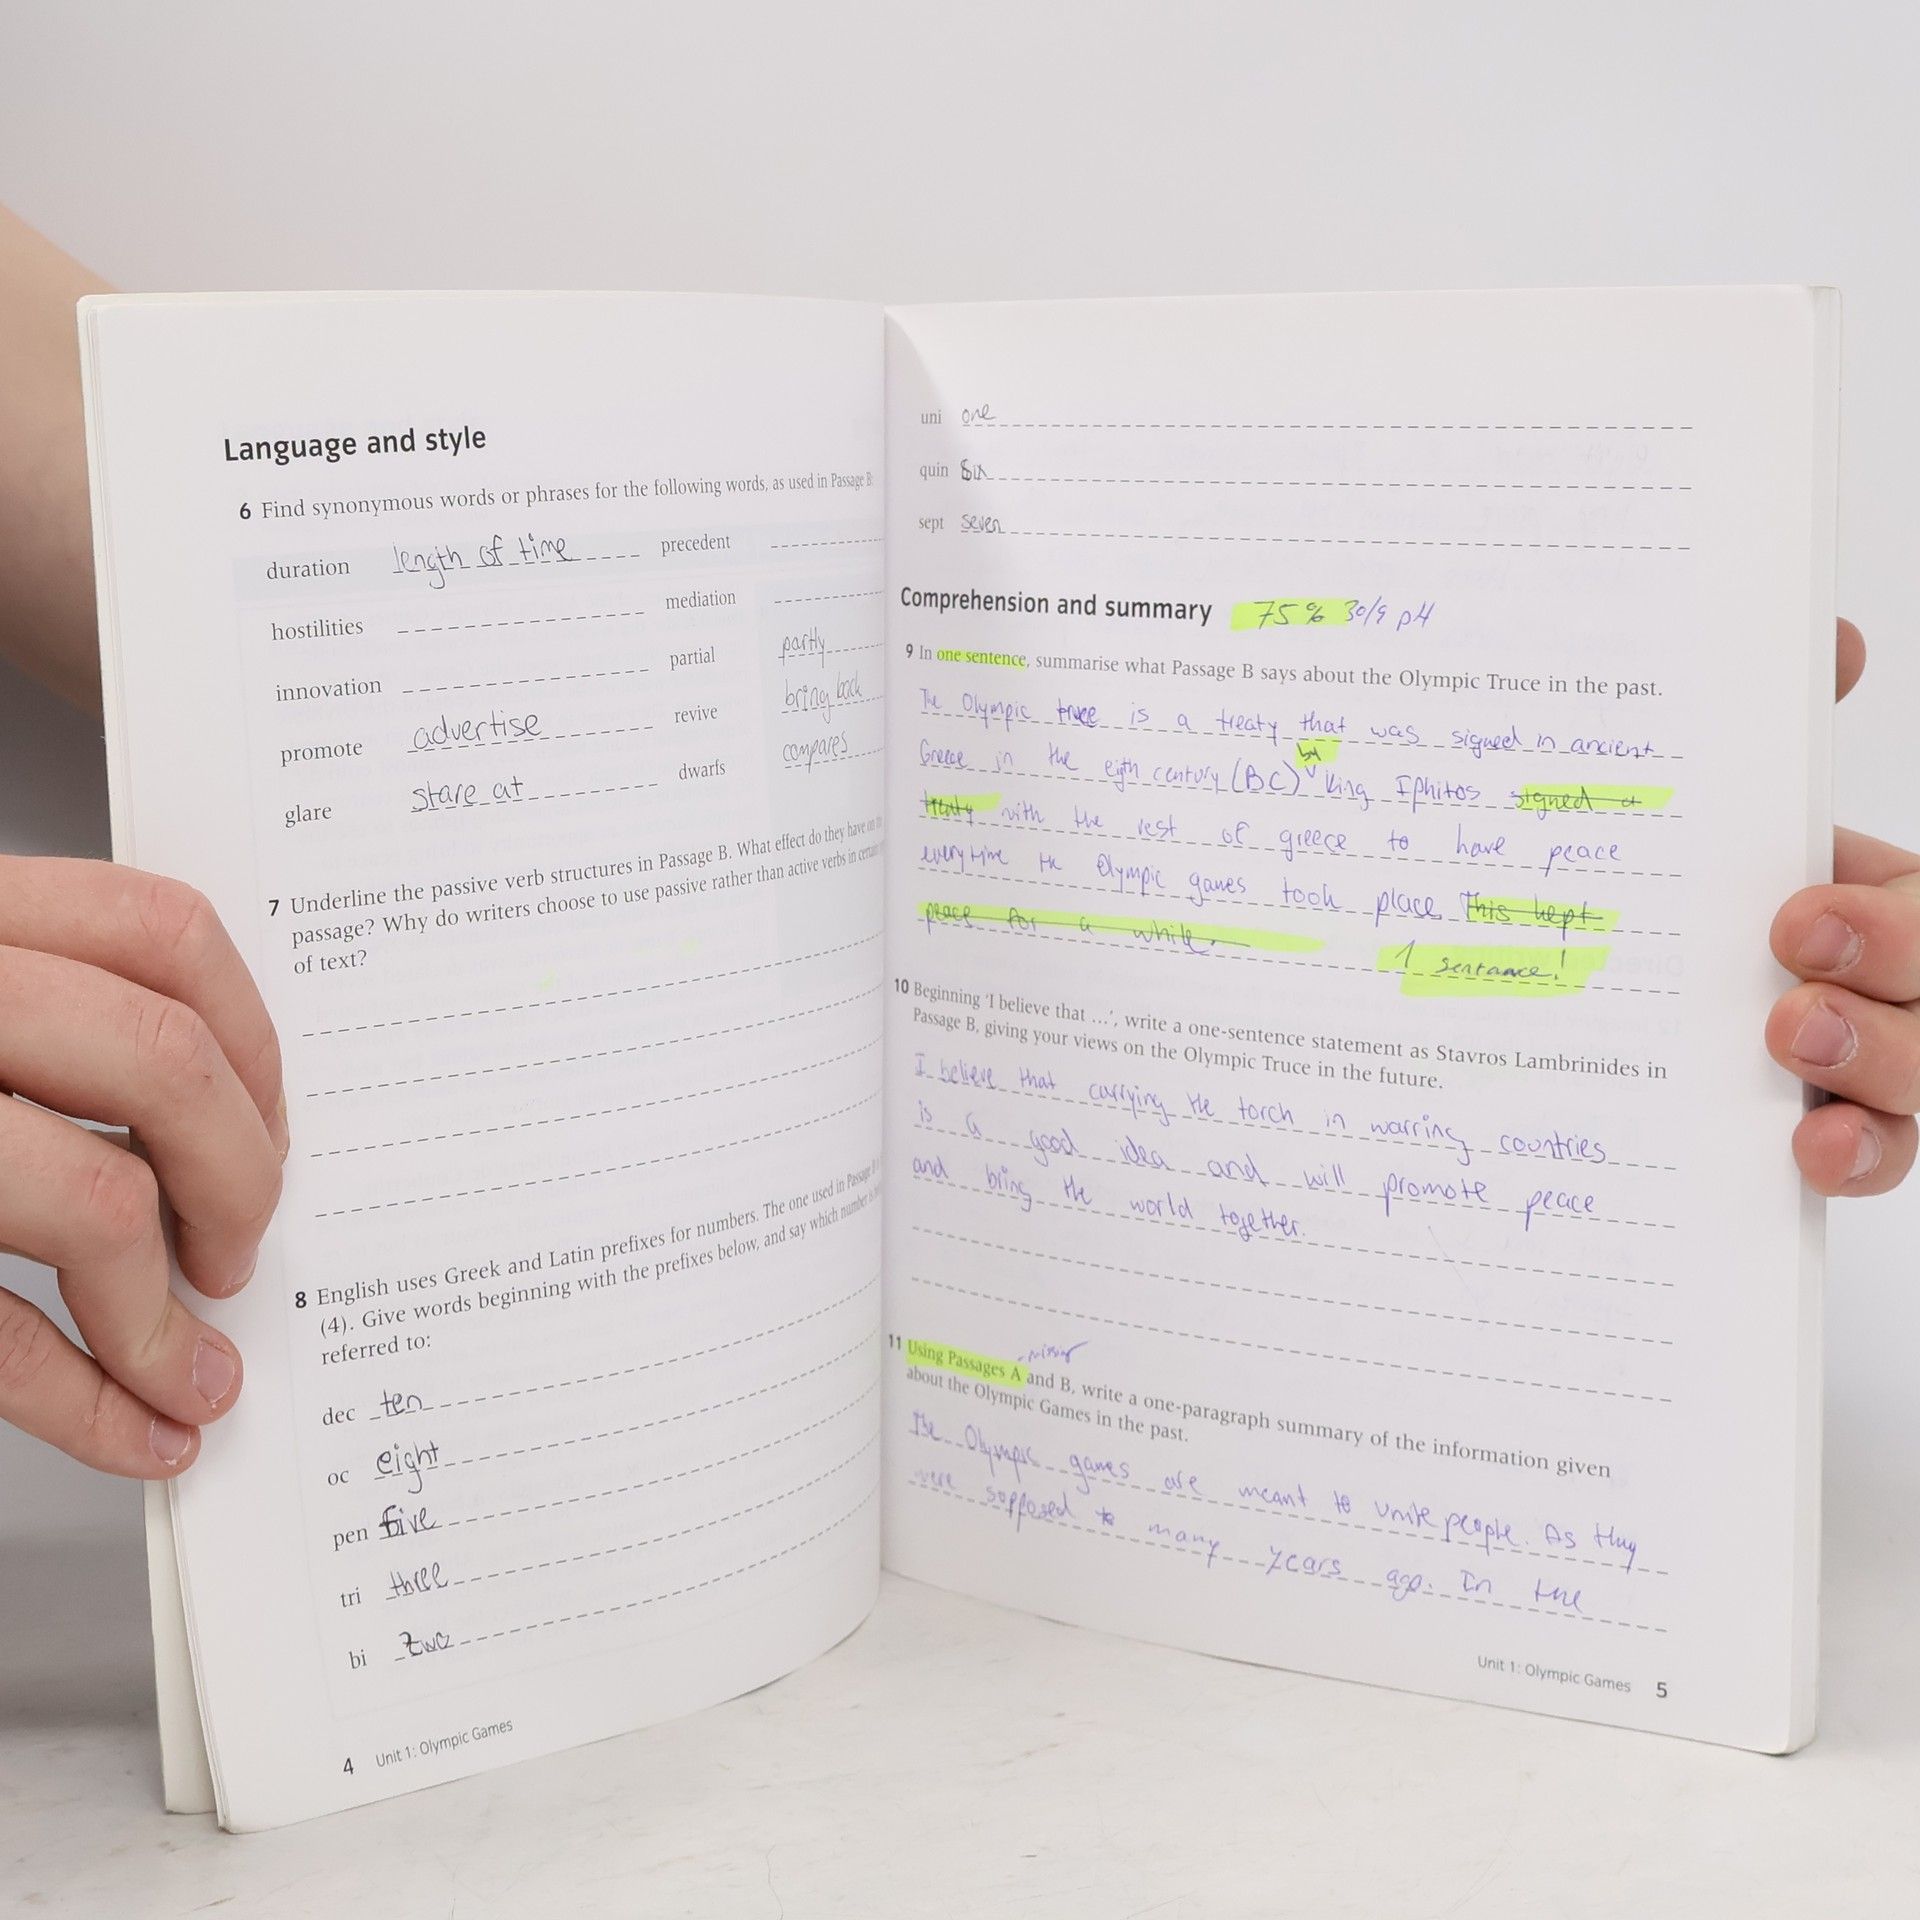 Language and style
6 Find synonymous words or phrases for the following words, as used in Passage B:
duration length of time precedent
hostilities mediation
innovation partial partly
promote advertise revive bring back
glare stare at dwarfs compares
7 Underline the passive verb structures in Passage B. What effect do they have on
passage? Why do writers choose to use passive rather than active verbs in certain
of text?
8 English uses Greek and Latin prefixes for numbers. The one used in Passage
(4). Give words beginning with the prefixes below, and say which number is
referred to:
dec ten
oc eight
pen five
tri three
bi two
4 Unit 1: Olympic Games
uni one
quin Six
sept seven
Comprehension and summary 75% 30/9 pH
9 In one sentence, summarise what Passage B says about the Olympic Truce in the past.
The Olympic truce is a treaty that was signed in ancient
by
Greece in the eigth century (BC) king Iphitos signed a
treaty with the rest of greece to have peace
everytime the Olympic games took place. This kept
peace for a while.
1 sentance!
10 Beginning 'I believe that ...', write a one-sentence statement as Stavros Lambrinides in
Passage B, giving your views on the Olympic Truce in the future.
I believe that carrying the torch in warring countries
is a good idea and will promote peace
and bring the world together.
missing
11 Using Passages A and B, write a one-paragraph summary of the information given
about the Olympic Games in the past.
The Olympic games are meant to unite people. As they
were sopposed to many years ago. In the
Unit 1: Olympic Games 5